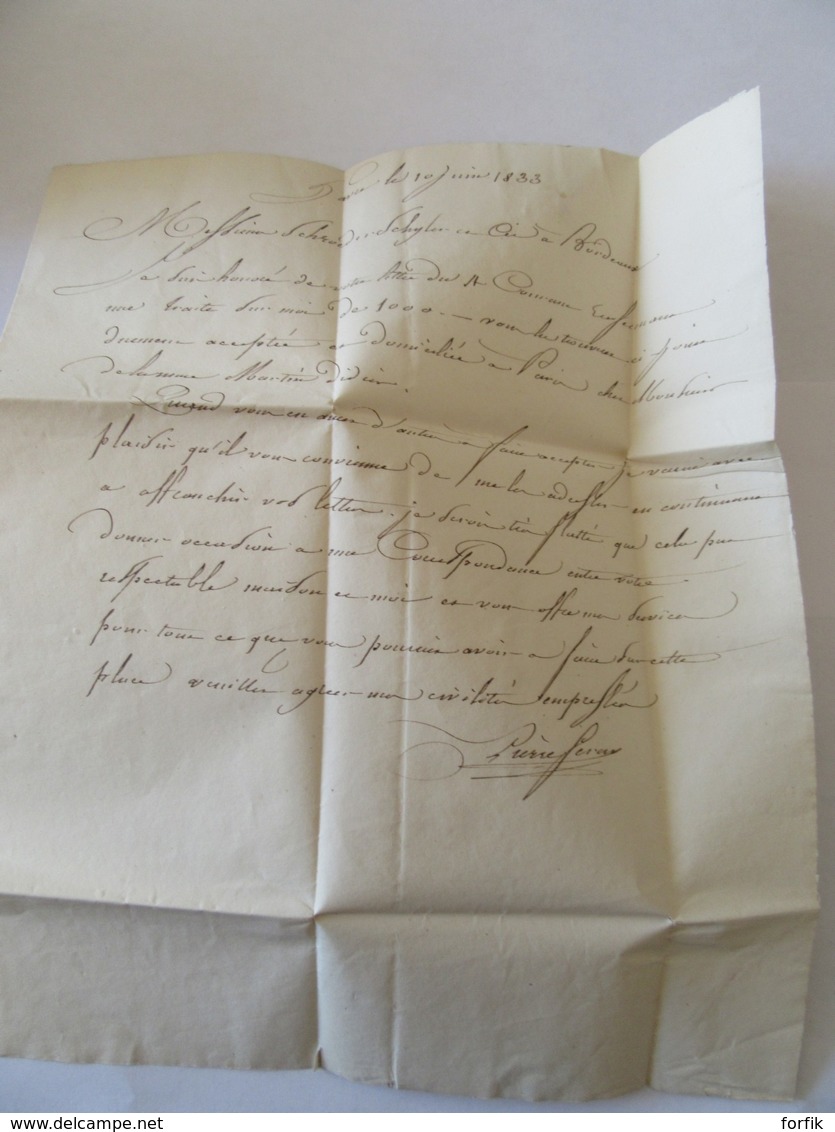 le 10 juin 1833
Messieurs Schröder Schyler et Cie à Bordeaux
J'ai suis honoré de votre lettre du 4 Courant renfermant
une traite sur moi de 1000.— vous la trouverez ci joint
dument acceptée et domiciliée à Paris chez Monsieur
Martin Didier.
Quand vous en aurez d'autres a faire accepter je verrai avec
plaisir qu'il vous convienne de me les adresser en continuant
a affranchir vos lettres. je serois très flatté que cela put
donner occasion a une Correspondance entre votre
respectable maison et moi et vous offre mes services
pour tout ce que vous pourriez avoir a faire sur cette
place veuillez agréer mes civilités empressées
Pierre
delcampe.net
forfik